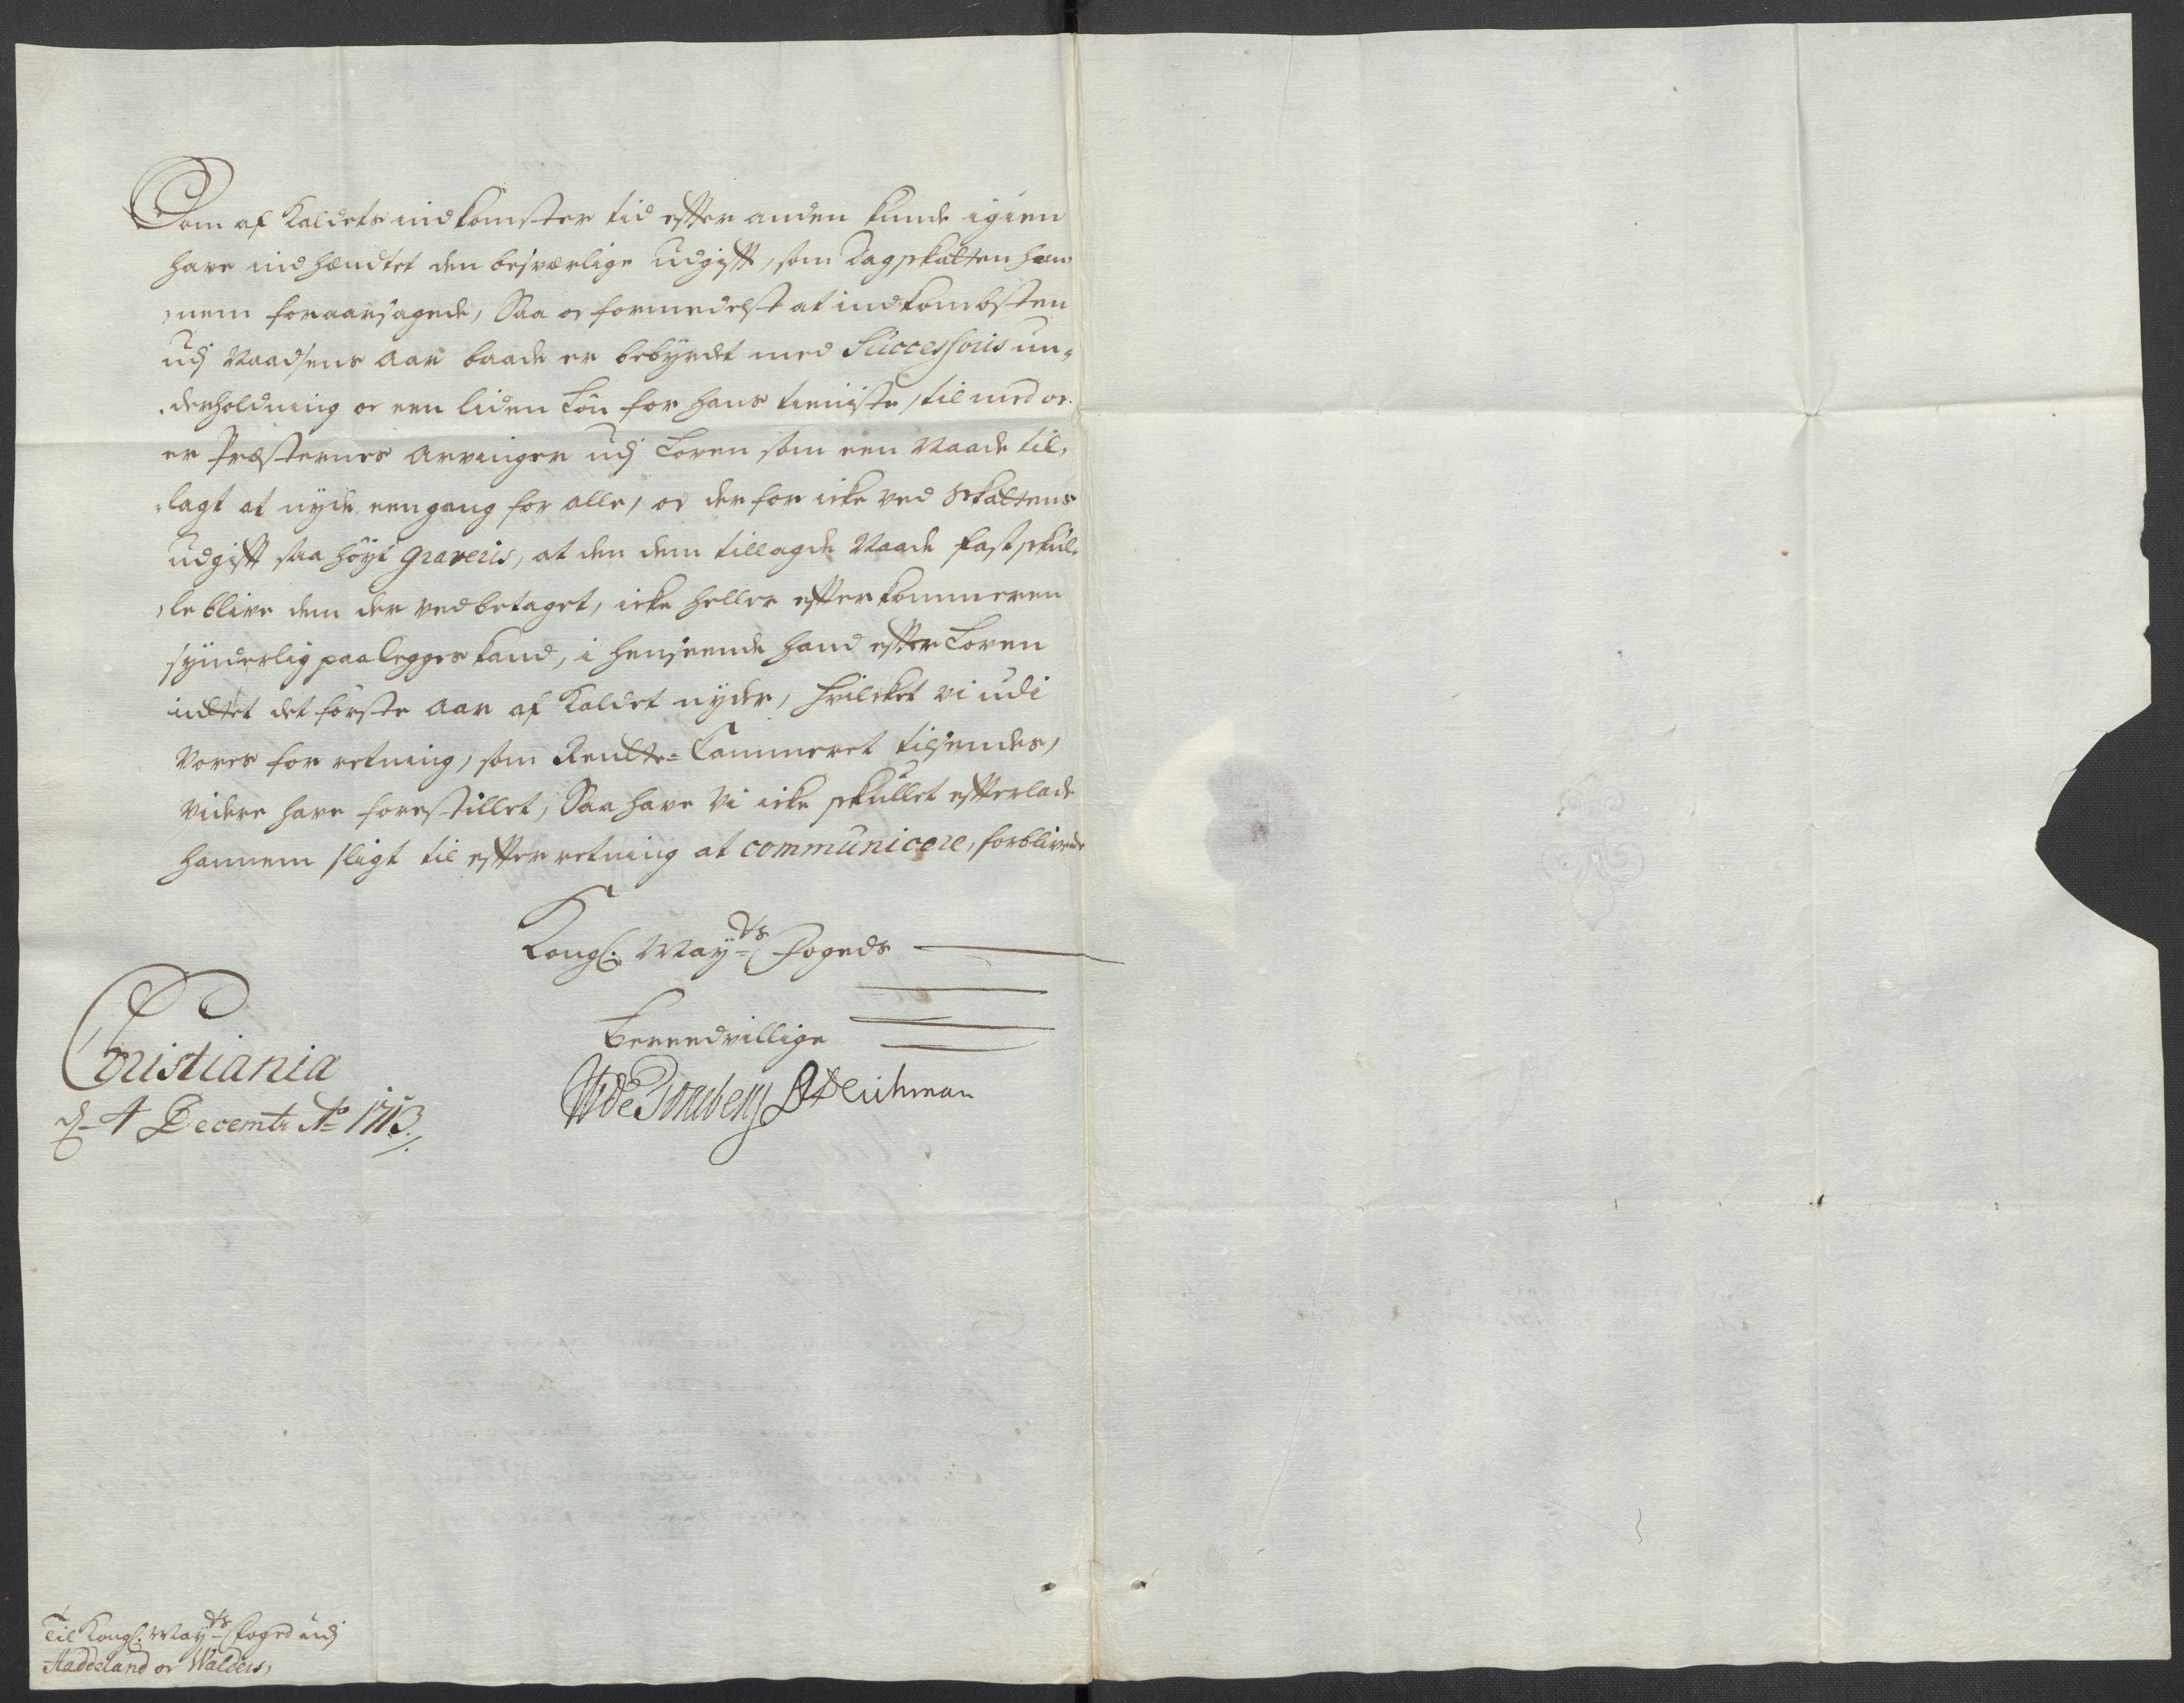 Som af Kaldets indkomster tid effter anden kunde igien
have indhændtet den besværlige Udgifft, som Dagskatten han-
nem foraarsagede, Saa oc formedelst at indkombsten
udj Naadsens Aar baade er bebyrdet med Successoris un-
derholdning oc een liden Løn for hans tieniste, til med oc
er Præsternes Arvinger udj Loven som een Naade til-
lagt at nyde eengang for alle, oc derfor icke ved Skattens
Udgifft saa høyt graveris, at den dem tillagde Naade fast skul-
le blive dem der ved betaget, icke heller effterkommeren
synderlig paalegges kand, i henseende hand effter Loven
indtet det første Aar af Kaldet nyder, hvilcket vi udi
Vores forretning, som Rendte-Cammeret tilsendes,
videre have forestillet, Saa have Vi icke skullet effterlade
hannem sligt til effterretning at communicere, forblivende
Kongl. May.ts Fogeds
Bereedvillige
Christiania
d. 4 Decembr Ao 1713.
Deichman
Til Kongl. May.ts Foged udj
Haddeland oc Walders,